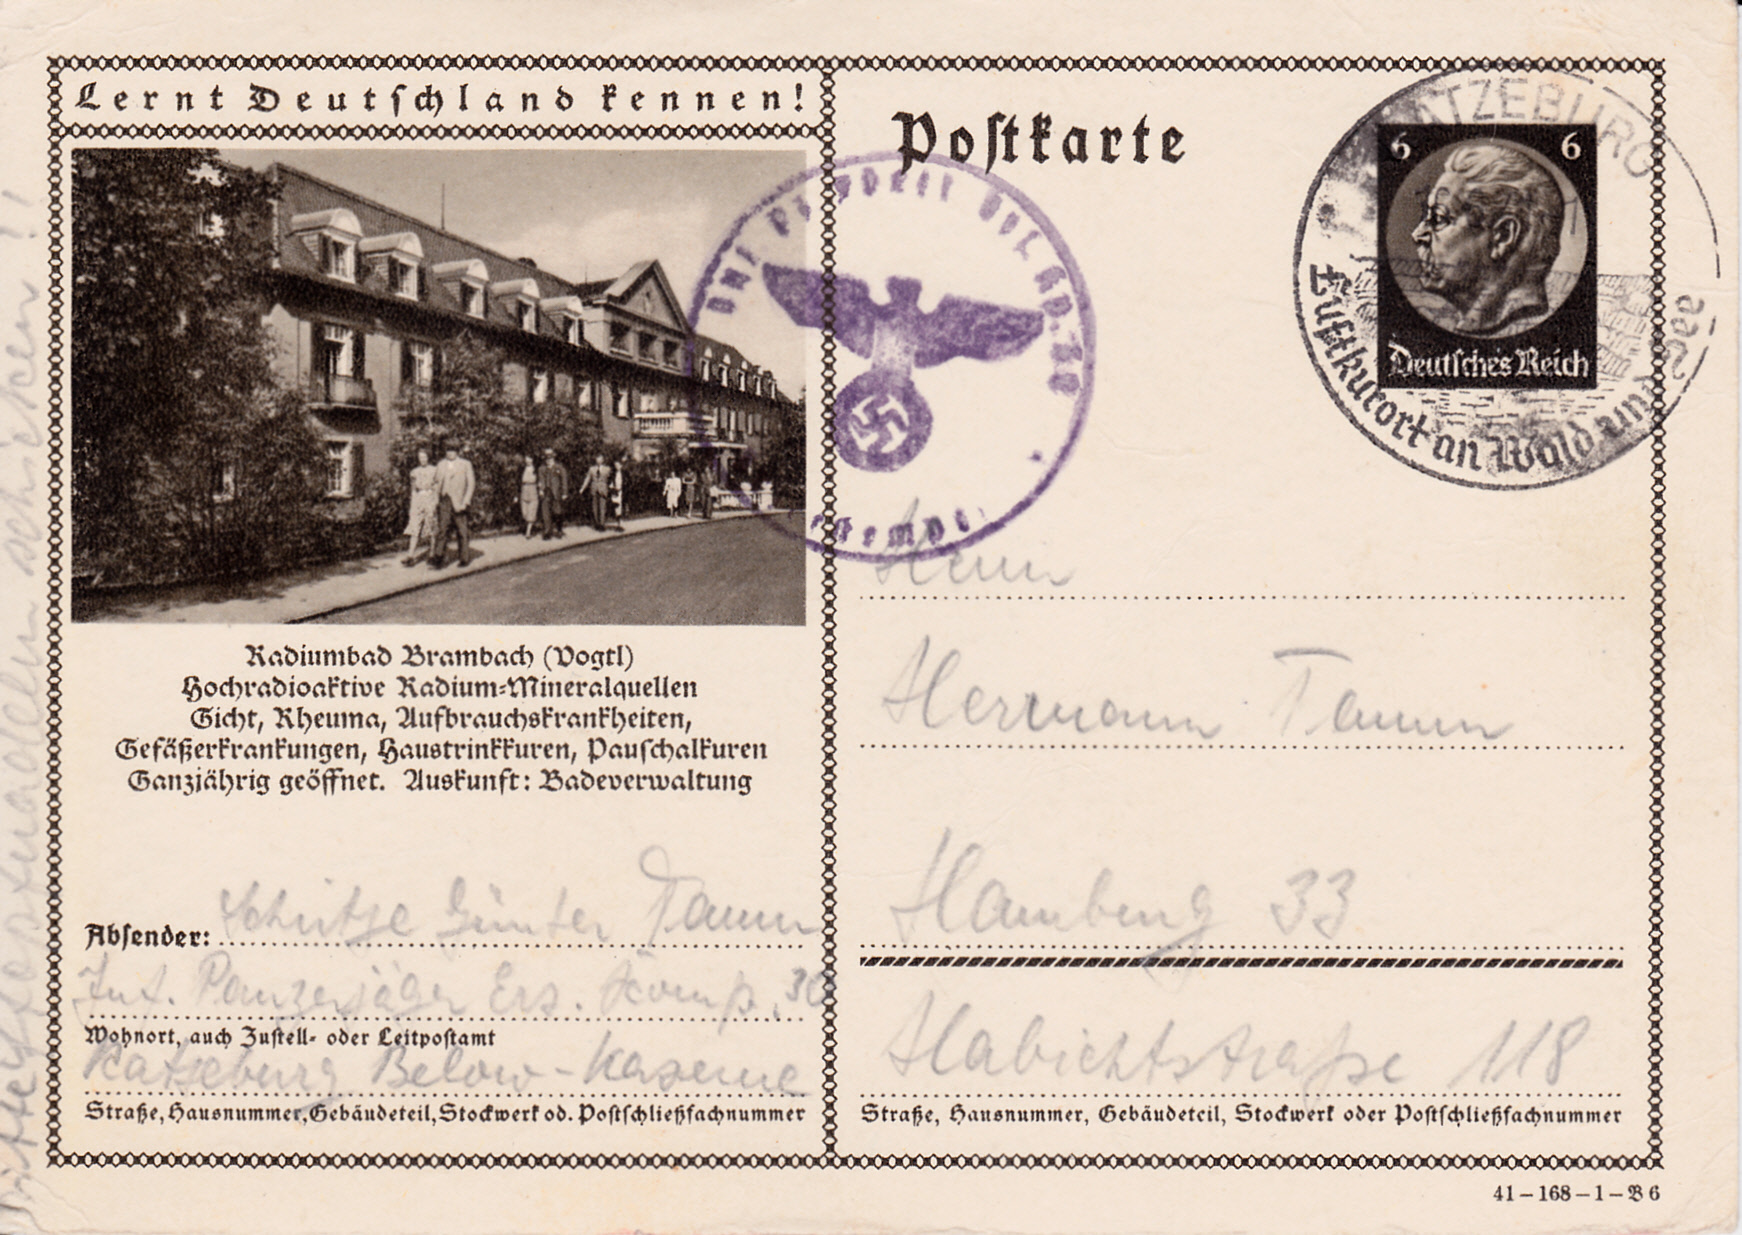 Lernt Deutschland kennen!
Postkarte
6 6
Deutsches Reich
RATZEBURG
Luftkurort an Wald und See
Radiumbad Brambach (Vogtl)
Hochradioaktive Radium-Mineralquellen
Gicht, Rheuma, Aufbrauchskrankheiten,
Gefäßerkrankungen, Haustrinkkuren, Pauschalkuren
Ganzjährig geöffnet. Auskunft: Badeverwaltung
Absender: Schütze Günter Tamm
Inf. Panzerjäger Ers. Komp. 30
Wohnort, auch Zustell- oder Leitpostamt
Ratzeburg Below-Kaserne
Straße, Hausnummer, Gebäudeteil, Stockwerk od. Postschließfachnummer
Herrn
Hermann Tamm
Hamburg 33
Habichtstraße 118
Straße, Hausnummer, Gebäudeteil, Stockwerk oder Postschließfachnummer
41-168-1-B6
schicken!!